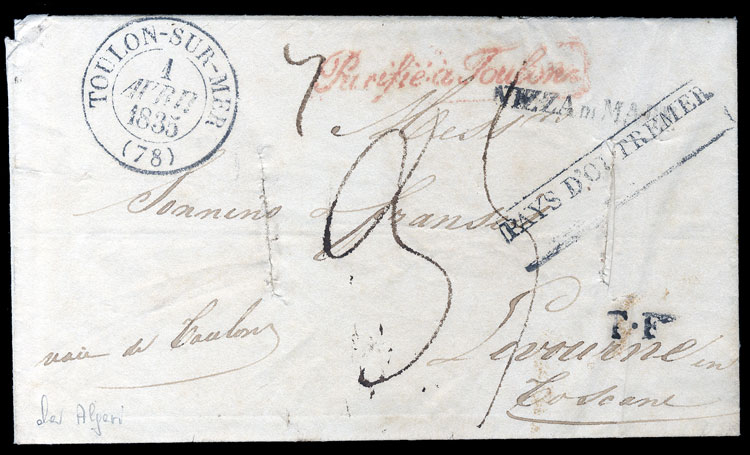 TOULON-SUR-MER
1
AVRIL
1835
(78)
Purifié à Toulon
NIZZA DI MA
PAYS D'OUTREMER
Sonnino
voie de Toulon
T.F
Livourne en
Toscane
da Algeri